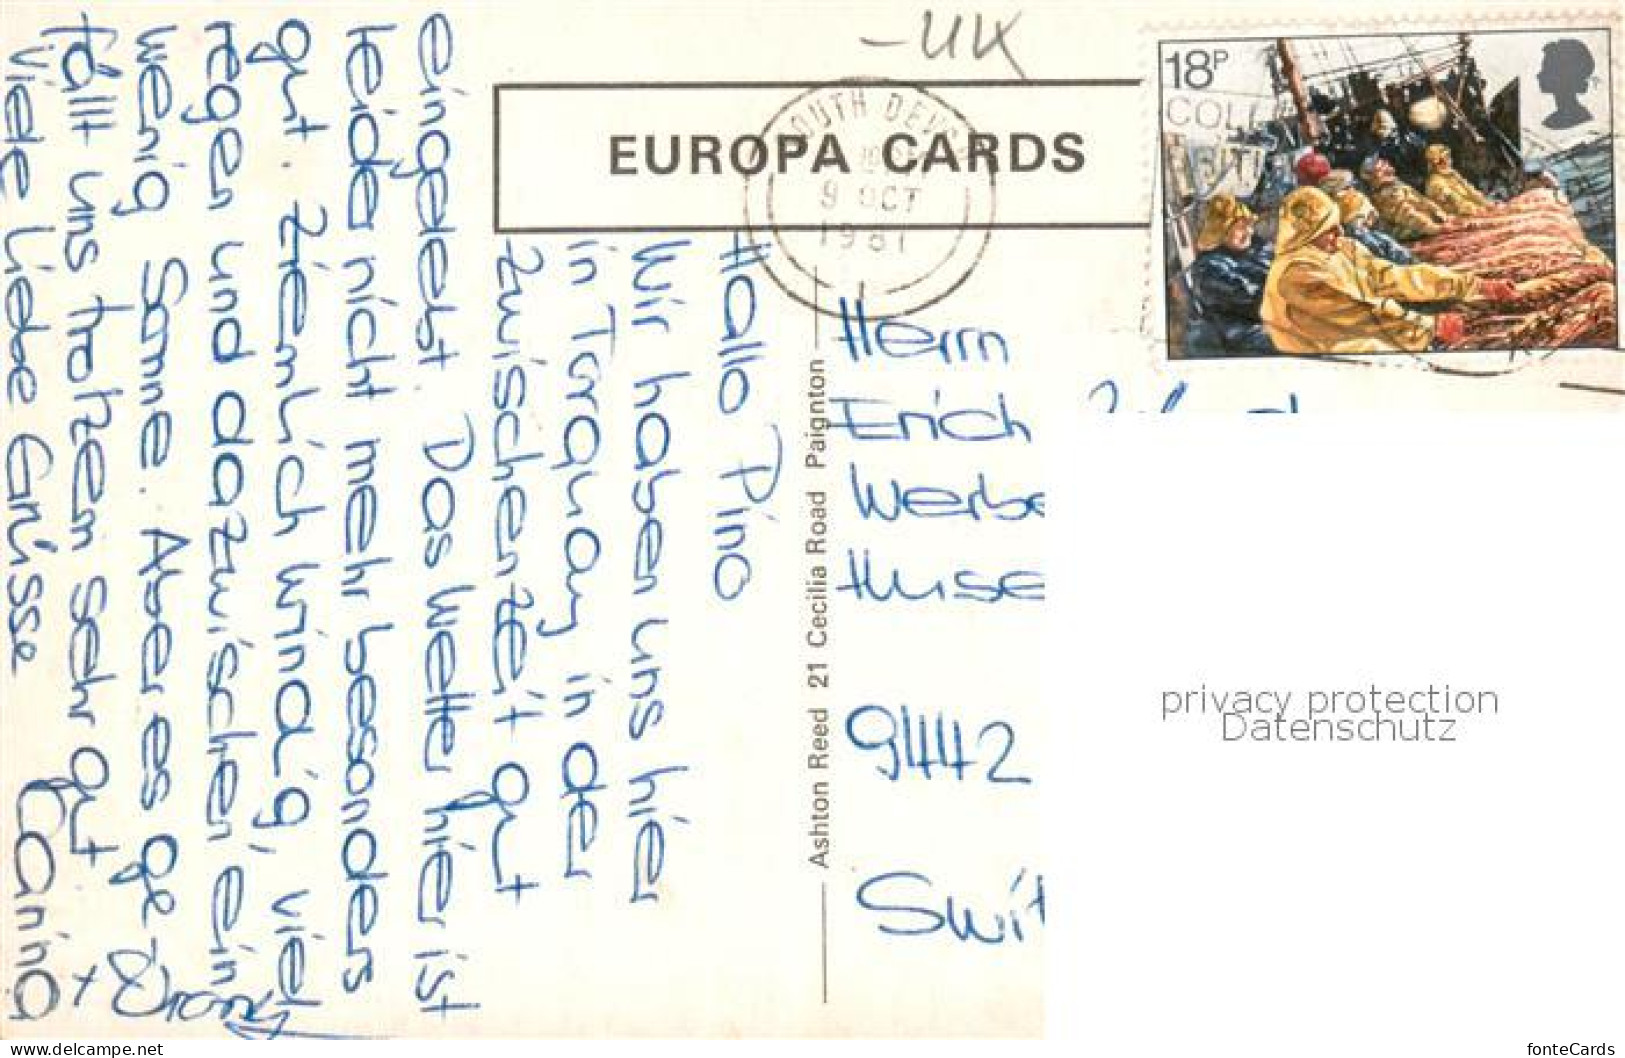 -UK
EUROPA CARDS
SOUTH DEVON
9 OCT
1981
18P
COLL
Hallo Pino
Wir haben uns hier
in Torquay in der
zwischenzeit gut
eingelebt. Das Wetter hier ist
leider nicht mehr besonders
gut. ziemlich windig, viel
regen und dazwischen ein
wenig Sonne. Aber es ge-
fällt uns trotzem sehr gut
Viele liebe Grüsse
Ashton Reed 21 Cecilia Road Paignton
Herrn
Erich
Werbe
Huse
9442
Swit
privacy protection
Datenschutz
www.delcampe.net
fonteCards